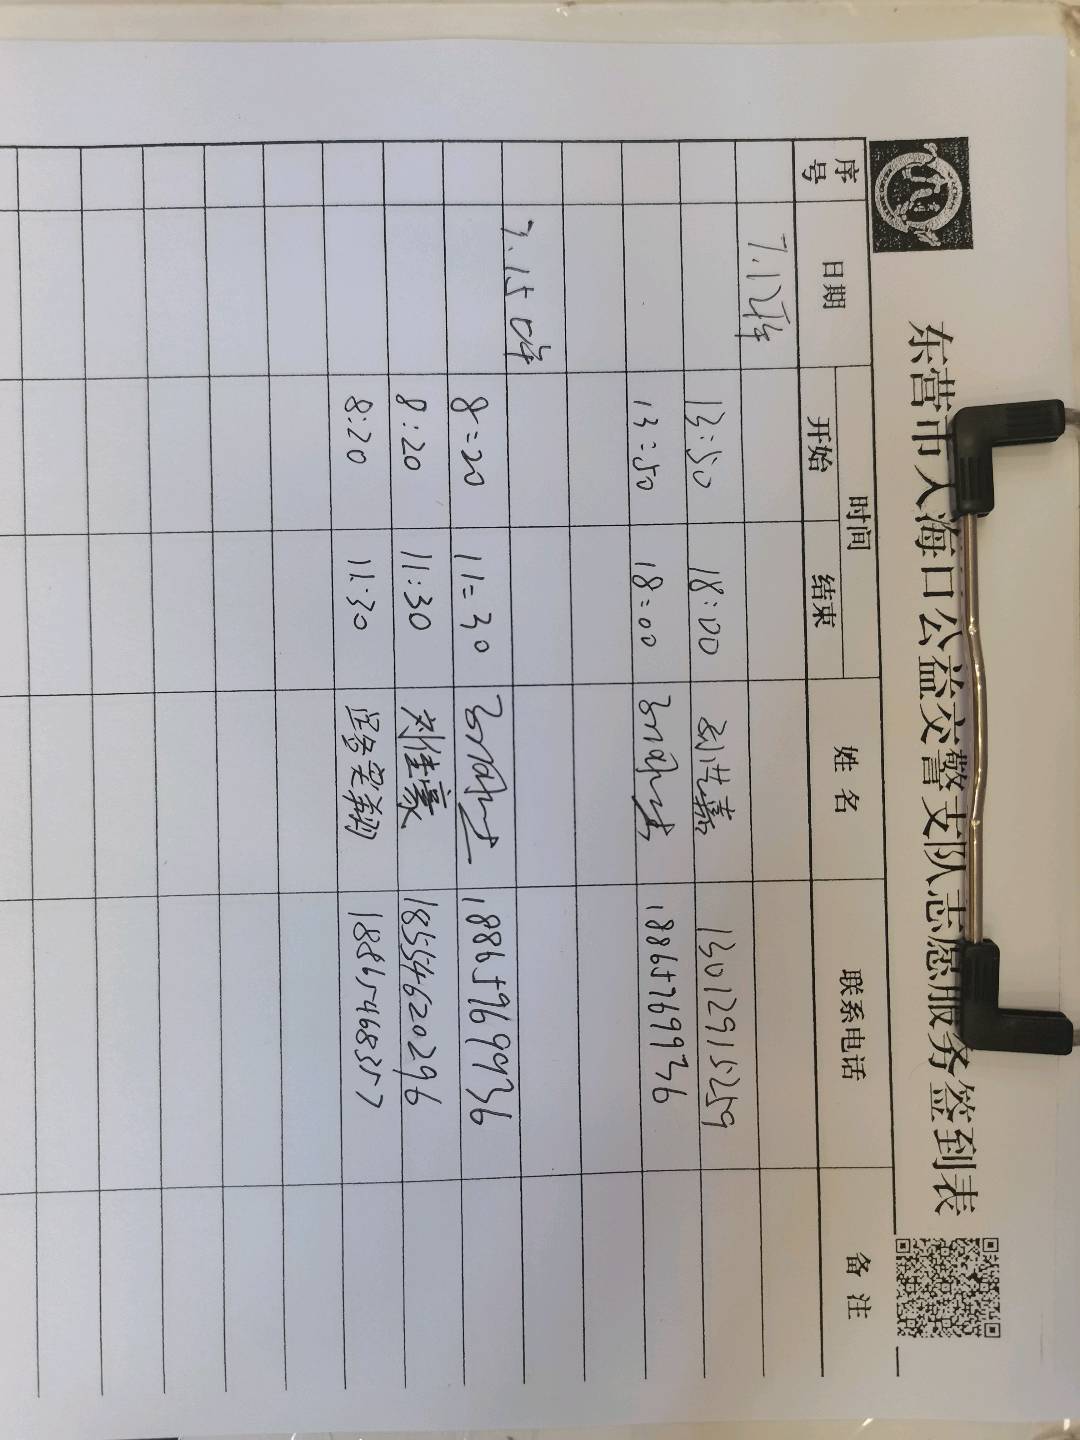 东营市入海口公益交警支队志愿服务签到表
序号 日期 时间 姓名 联系电话 备注
开始 结束
7.12
13:50 18:00 刘艺嘉 13012915259
13:50 18:00 18865769936
7.15
8:20 11:30 18865969936
8:20 11:30 刘佳豪 18554620296
8:20 11:30 18865468357